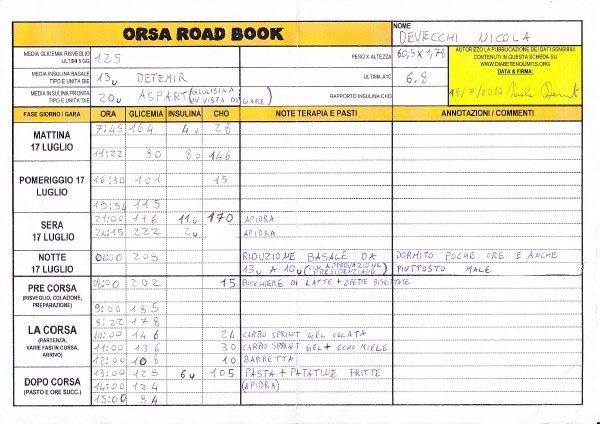 ORSA ROAD BOOK
NOME
DEVECCHI NICOLA
MEDIA GLICEMIA RISVEGLIO ULTIMI 5 GG 125 PESO X ALTEZZA 60,5 x 1,78
AUTORIZZO LA PUBBLICAZIONE DEI DATI SENSIBILI CONTENUTI IN QUESTA SCHEDA SU WWW.DIABETENOLIMITS.ORG
DATA & FIRMA:
18/7/2010
MEDIA INSULINA BASALE TIPO E UNITA' DIE 13u DETEMIR ULTIMA A1C 6.8
MEDIA INSULINA PRONTA TIPO E UNITA' DIE 20u ASPART (GLULISINA IN VISTA DI GARE) RAPPORTO INSULINA:CHO
FASE GIORNO / GARA ORA GLICEMIA INSULINA CHO NOTE TERAPIA E PASTI ANNOTAZIONI / COMMENTI
MATTINA 17 LUGLIO
7:45 164 4u 28
11:22 90 8u 146
POMERIGGIO 17 LUGLIO
16:30 101 15
19:54 115
SERA 17 LUGLIO
21:00 116 11u 170 APIDRA
24:15 222 2u APIDRA
NOTTE 17 LUGLIO
00:00 209 RIDUZIONE BASALE DA DORMITO POCHE ORE E ANCHE
13u A 10u (CON APPROVAZIONE PRESIDENZIALE) PIUTTOSTO MALE
PRE CORSA (RISVEGLIO, COLAZIONE, PREPARAZIONE)
08:00 202 15 BICCHIERE DI LATTE + 2 FETTE BISCOTTATE
9:00 195
LA CORSA (PARTENZA, VARIE FASI IN CORSA, ARRIVO)
9:22 178
10:00 146 24 CARBO SPRINT GEL VOLATA
11:00 136 30 CARBO SPRINT GEL + ECHO MIELE
12:00 108 10 BARRETTA
DOPO CORSA (PASTO E ORE SUCC.)
13:00 129 6u 105 PASTA + PATATINE FRITTE
14:00 124 (APIDRA)
15:00 94